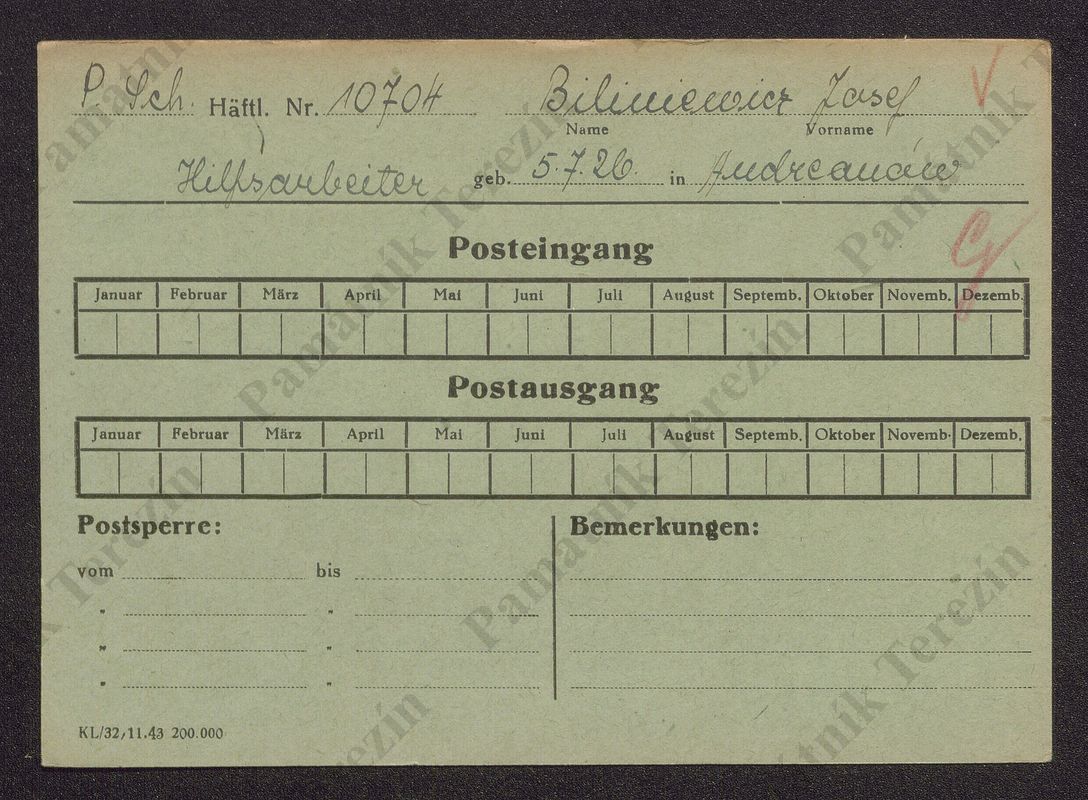 P. Sch. Häftl. Nr. 10704 Biliniewicz Josef
Name Vorname
Hilfsarbeiter geb. 5.7.26. in Andreanów
Posteingang
Januar Februar März April Mai Juni Juli August Septemb. Oktober Novemb. Dezemb.
Postausgang
Januar Februar März April Mai Juni Juli August Septemb. Oktober Novemb. Dezemb.
Postsperre: Bemerkungen:
vom bis
" "
" "
" "
KL/32/11.43 200.000
Památník Terezín
Památník Terezín
Památník Terezín
Památník Terezín